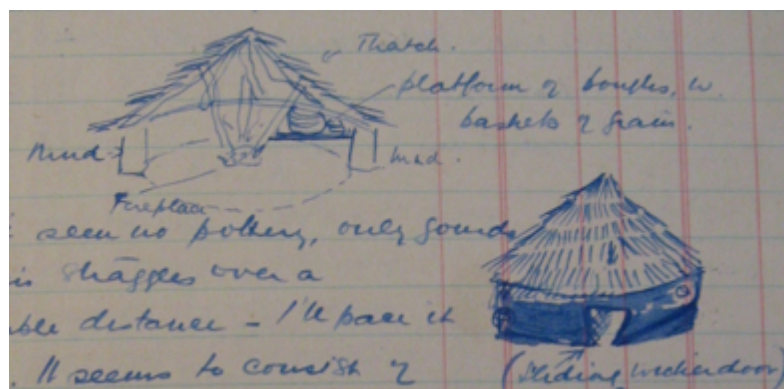 Thatch.
platform of boughs, w.
baskets of grain.
Mud
mud.
Fireplace
seen no pottery, only gourds
straggles over a
distance - I'll pace it
. It seems to consist of
(sliding wicker door)